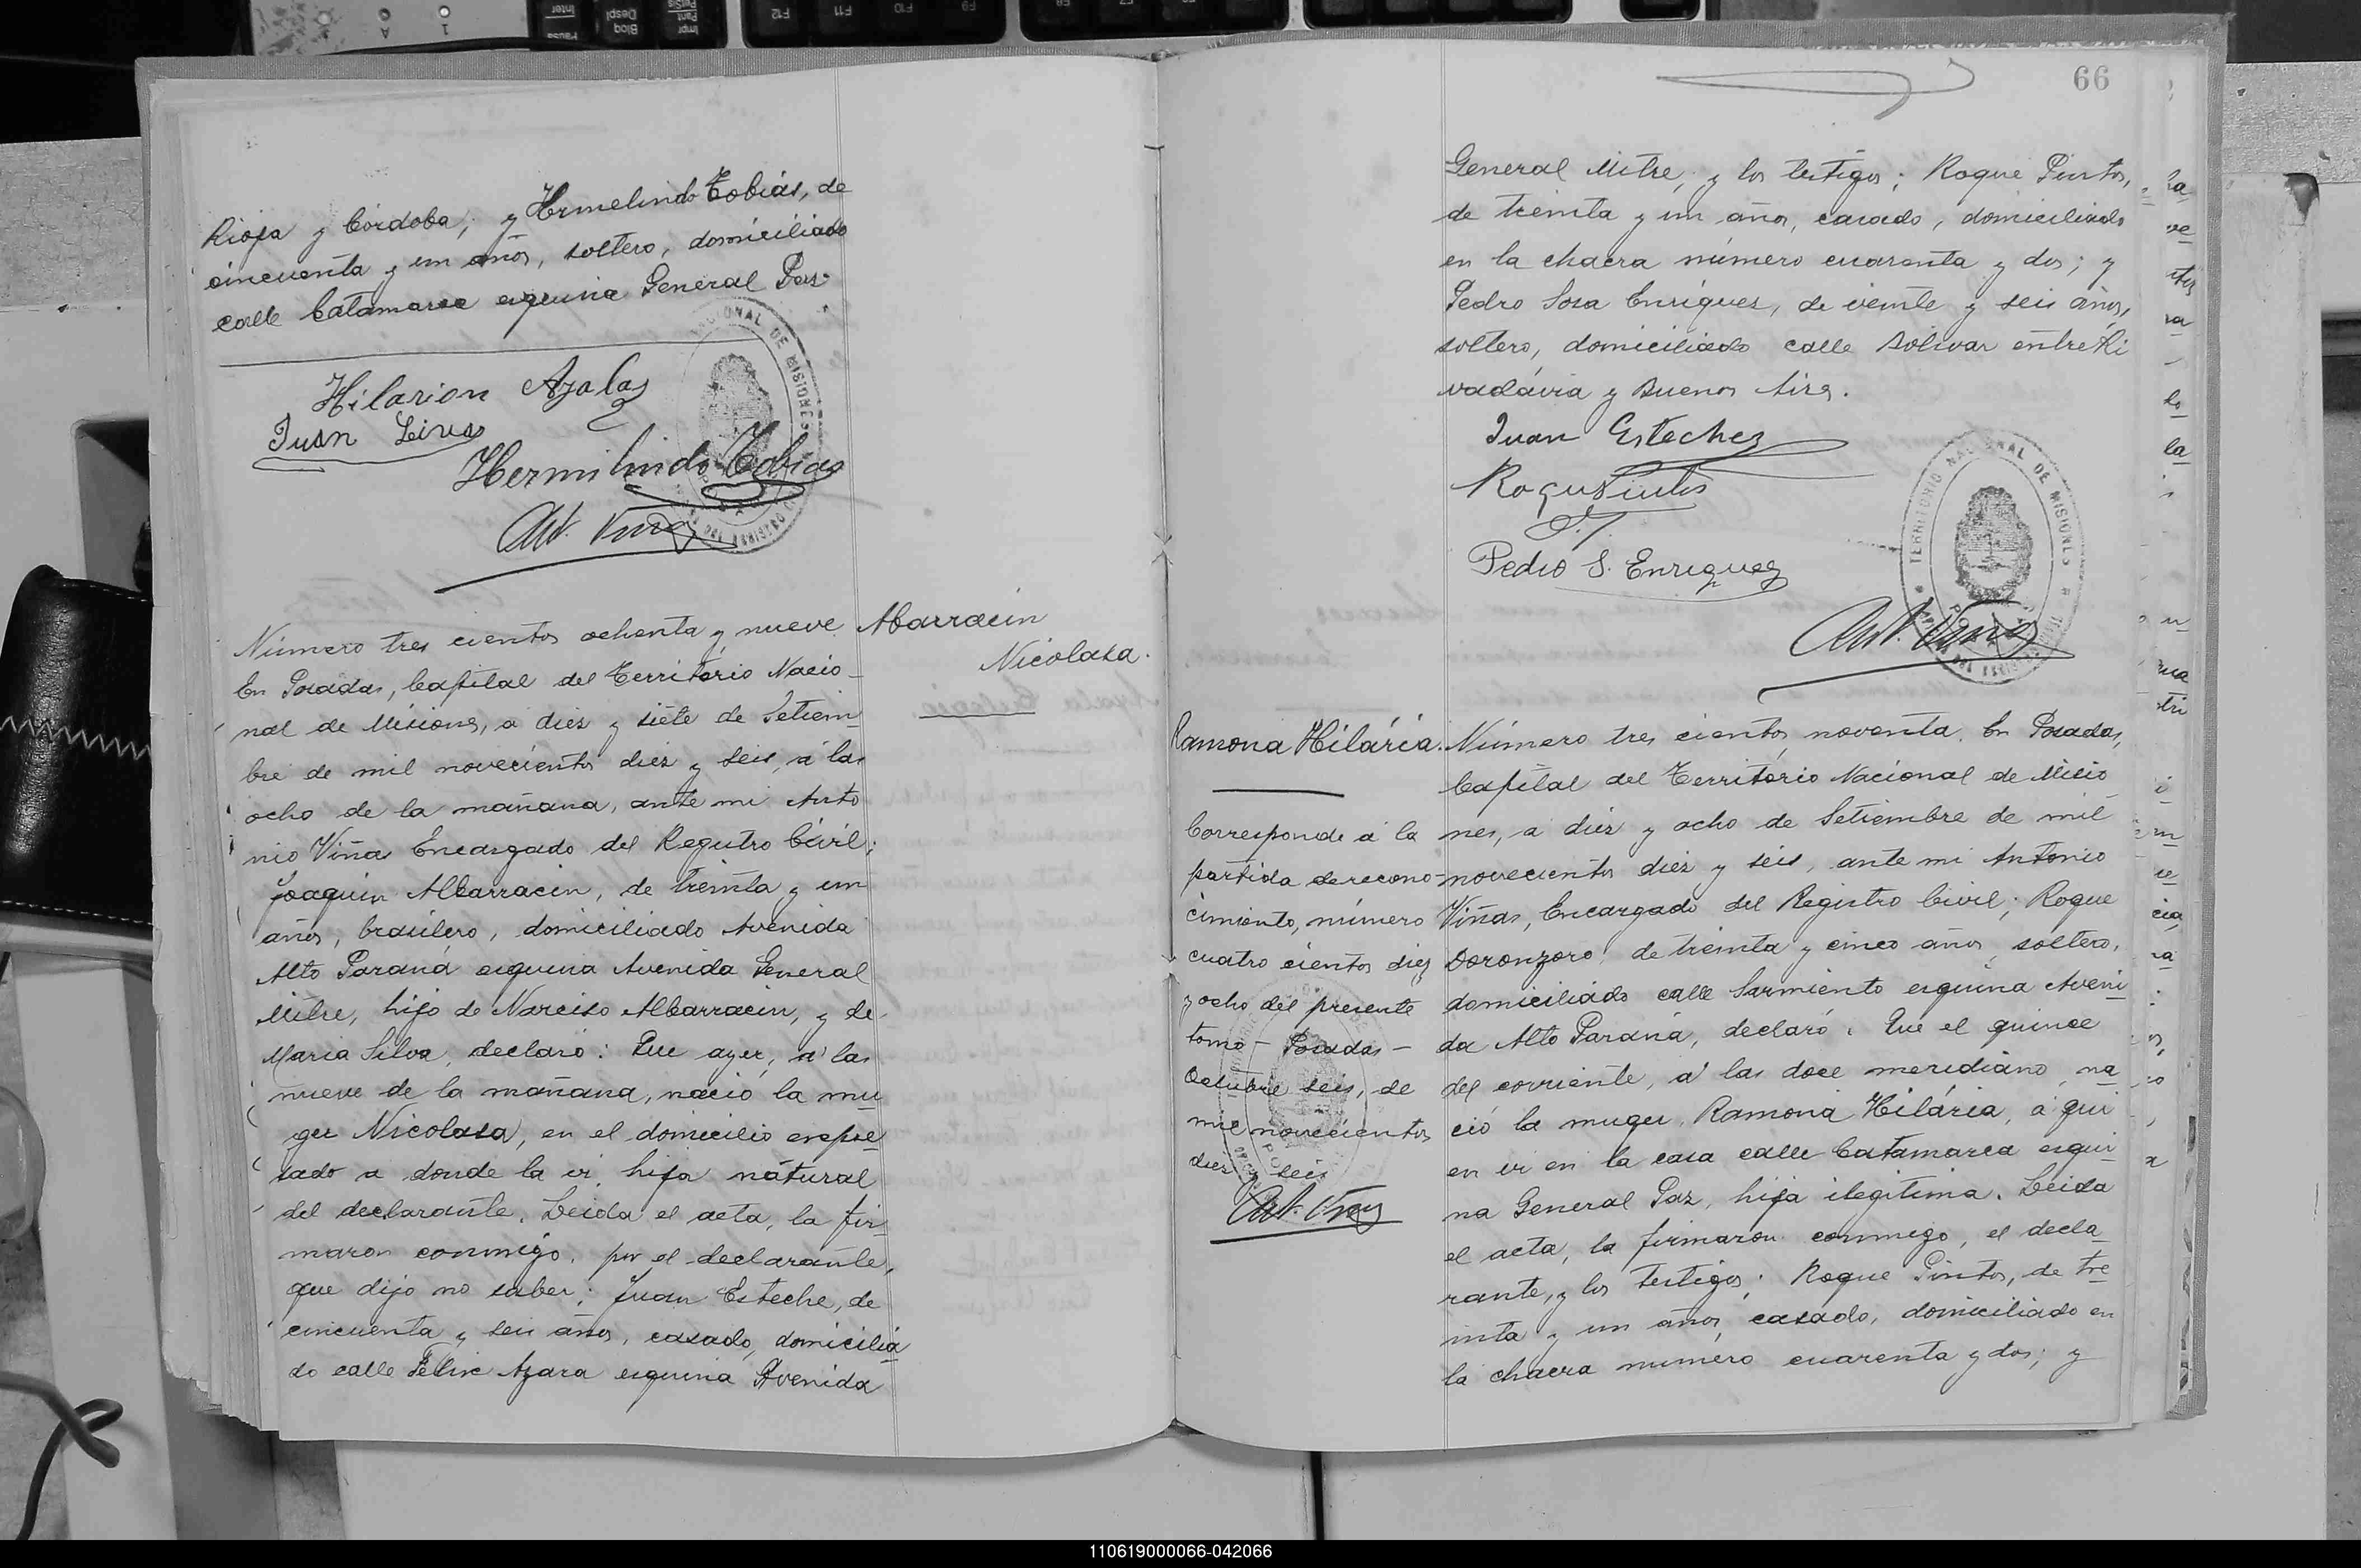 66
Rioja y Córdoba; y Hermelindo Tobiás, de
cincuenta y un años, soltero, domiciliado
calle Catamarca esquina General Paz.
Hilarion Ayala
Juan Leiva
Hermilindo Tobias
Ant. Viñas
Número tres cientos ochenta y nueve
En Posadas, Capital del Territorio Nacio-
nal de Misiones, a diez y siete de Setiem
bre de mil novecientos diez y seis, a las
ocho de la mañana, ante mi Anto
nio Viñas Encargado del Registro Civil;
Joaquin Albarracin, de treinta y un
años, brasilero, domiciliado Avenida
Alto Paraná esquina Avenida General
Mitre, hijo de Narciso Albarracin, y de
Maria Silva, declaró: Que ayer, a las
nueve de la mañana, nació la mu
ger Nicolasa, en el domicilio expre
sado a donde la ví, hija natural
del declarante. Leida el acta, la fir
maron conmigo, por el declarante,
que dijo no saber; Juan Esteche, de
cincuenta y seis años, casado, domicilia
do calle Félix Azara esquina Avenida
Abarracin
Nicolasa.
General Mitre, y los testigos; Roque Pintos,
de treinta y un años, casado, domiciliado
en la chacra número cuarenta y dos; y
Pedro Sosa Enríquez, de veinte y seis años,
soltero, domiciliado calle Bolivar entre Ri
vadávia y Buenos Aires.
Juan Estechez
Roque Pintos
Pedro S. Enriquez
TERRITORIO NACIONAL DE MISIONES
Ant. Viñas
Ramona Hilária.
Corresponde a la
partida de recono-
cimiento, número
cuatro cientos diez
y ocho del presente
tomo - Posadas -
Octubre seis, de
mil novecientos
diez y seis
Ant. Viñas
Número tres cientos noventa. En Posadas,
Capital del Territorio Nacional de Misio
nes, a diez y ocho de Setiembre de mil
novecientos diez y seis, ante mi Antonio
Viñas, Encargado del Registro Civil; Roque
Doronzoro, de treinta y cinco años, soltero,
domiciliado calle Sarmiento esquina Aveni
da Alto Paraná, declaró: Que el quince
del corriente, a las doce meridiano, na
ció la muger, Ramona Hilária, a qui
en ví en la casa calle Catamarca esqui
na General Paz, hija ilegitima. Leida
el acta, la firmaron conmigo, el decla
rante, y los testigos; Roque Pintos, de tre
inta y un años, casado, domiciliado en
la chacra numero cuarenta y dos; y
110619000066-042066